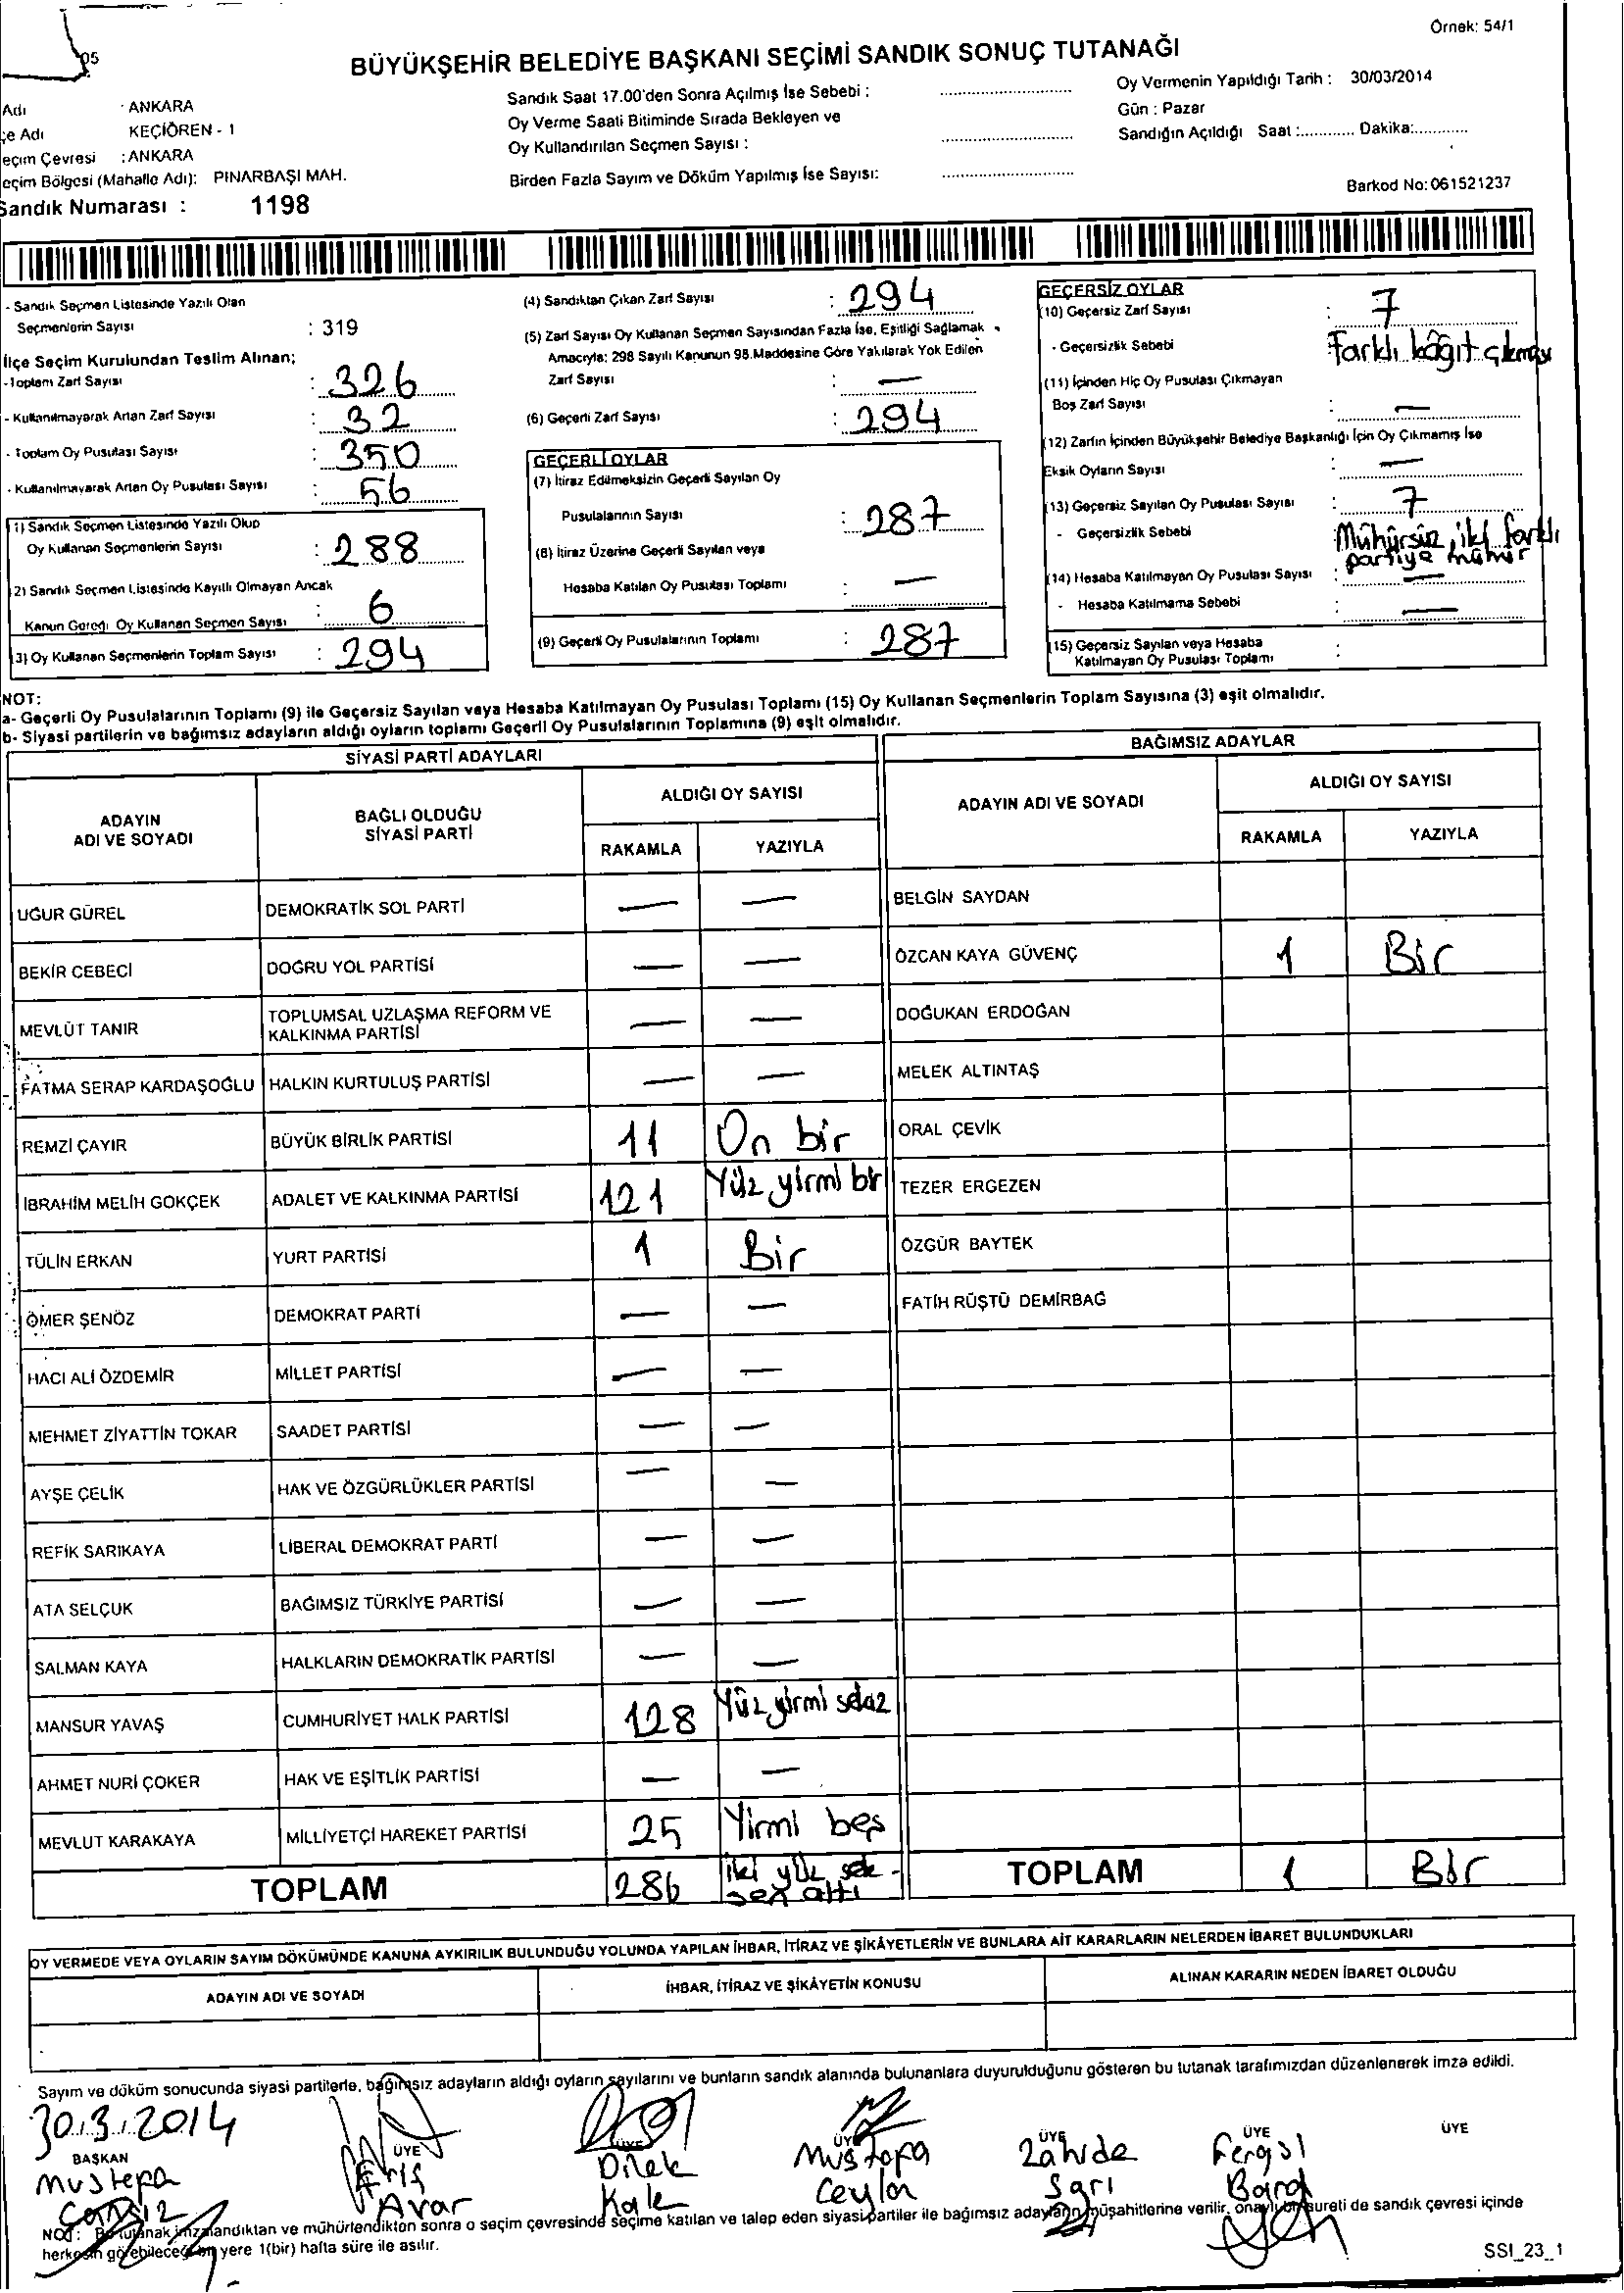 Örnek: 54/1
05
BÜYÜKŞEHİR BELEDİYE BAŞKANI SEÇİMİ SANDIK SONUÇ TUTANAĞI
Adı : ANKARA
çe Adı KEÇİÖREN - 1
eçim Çevresi : ANKARA
eçim Bölgesi (Mahalle Adı): PINARBAŞI MAH.
Sandık Numarası : 1198
Sandık Saat 17.00'den Sonra Açılmış İse Sebebi :
Oy Verme Saati Bitiminde Sırada Bekleyen ve
Oy Kullandırılan Seçmen Sayısı :
Birden Fazla Sayım ve Döküm Yapılmış İse Sayısı:
Oy Vermenin Yapıldığı Tarih : 30/03/2014
Gün : Pazar
Sandığın Açıldığı Saat :............ Dakika:...........
Barkod No: 061521237
- Sandık Seçmen Listesinde Yazılı Olan
Seçmenlerin Sayısı : 319
İlçe Seçim Kurulundan Teslim Alınan;
-Toplam Zarf Sayısı : 326
- Kullanılmayarak Artan Zarf Sayısı : 32
- Toplam Oy Pusulası Sayısı : 350
- Kullanılmayarak Artan Oy Pusulası Sayısı : 56
1) Sandık Seçmen Listesinde Yazılı Olup
Oy Kullanan Seçmenlerin Sayısı : 288
2) Sandık Seçmen Listesinde Kayıtlı Olmayan Ancak
Kanun Gereği Oy Kullanan Seçmen Sayısı : 6
3) Oy Kullanan Seçmenlerin Toplam Sayısı : 294
(4) Sandıktan Çıkan Zarf Sayısı : 294
(5) Zarf Sayısı Oy Kullanan Seçmen Sayısından Fazla İse, Eşitliği Sağlamak
Amacıyla; 298 Sayılı Kanunun 98.Maddesine Göre Yakılarak Yok Edilen
Zarf Sayısı : —
(6) Geçerli Zarf Sayısı : 294
GEÇERLİ OYLAR
(7) İtiraz Edilmeksizin Geçerli Sayılan Oy
Pusulalarının Sayısı : 287
(8) İtiraz Üzerine Geçerli Sayılan veya
Hesaba Katılan Oy Pusulası Toplamı : —
(9) Geçerli Oy Pusulalarının Toplamı : 287
GEÇERSİZ OYLAR
(10) Geçersiz Zarf Sayısı : 7
- Geçersizlik Sebebi Farklı kağıt çıkması
(11) İçinden Hiç Oy Pusulası Çıkmayan
Boş Zarf Sayısı : —
(12) Zarfın İçinden Büyükşehir Belediye Başkanlığı İçin Oy Çıkmamış İse
Eksik Oyların Sayısı : —
(13) Geçersiz Sayılan Oy Pusulası Sayısı : 7
- Geçersizlik Sebebi Mühürsüz, iki farklı
partiye mühür
(14) Hesaba Katılmayan Oy Pusulası Sayısı : —
- Hesaba Katılmama Sebebi : —
(15) Geçersiz Sayılan veya Hesaba
Katılmayan Oy Pusulası Toplamı :
NOT:
a- Geçerli Oy Pusulalarının Toplamı (9) ile Geçersiz Sayılan veya Hesaba Katılmayan Oy Pusulası Toplamı (15) Oy Kullanan Seçmenlerin Toplam Sayısına (3) eşit olmalıdır.
b- Siyasi partilerin ve bağımsız adayların aldığı oyların toplamı Geçerli Oy Pusulalarının Toplamına (9) eşit olmalıdır.
SİYASİ PARTİ ADAYLARI
ADAYIN
ADI VE SOYADI
BAĞLI OLDUĞU
SİYASİ PARTİ
ALDIĞI OY SAYISI
RAKAMLA YAZIYLA
UĞUR GÜREL DEMOKRATİK SOL PARTİ — —
BEKİR CEBECİ DOĞRU YOL PARTİSİ — —
MEVLÜT TANIR TOPLUMSAL UZLAŞMA REFORM VE
KALKINMA PARTİSİ — —
FATMA SERAP KARDAŞOĞLU HALKIN KURTULUŞ PARTİSİ — —
REMZİ ÇAYIR BÜYÜK BİRLİK PARTİSİ 11 On bir
İBRAHİM MELİH GÖKÇEK ADALET VE KALKINMA PARTİSİ 121 Yüz yirmi bir
TÜLİN ERKAN YURT PARTİSİ 1 Bir
ÖMER ŞENÖZ DEMOKRAT PARTİ — —
HACI ALİ ÖZDEMİR MİLLET PARTİSİ — —
MEHMET ZİYATTİN TOKAR SAADET PARTİSİ — —
AYŞE ÇELİK HAK VE ÖZGÜRLÜKLER PARTİSİ — —
REFİK SARIKAYA LİBERAL DEMOKRAT PARTİ — —
ATA SELÇUK BAĞIMSIZ TÜRKİYE PARTİSİ — —
SALMAN KAYA HALKLARIN DEMOKRATİK PARTİSİ — —
MANSUR YAVAŞ CUMHURİYET HALK PARTİSİ 128 Yüz yirmi sekiz
AHMET NURİ ÇOKER HAK VE EŞİTLİK PARTİSİ — —
MEVLUT KARAKAYA MİLLİYETÇİ HAREKET PARTİSİ 25 Yirmi beş
TOPLAM 286 iki yüz sek-
sen altı
BAĞIMSIZ ADAYLAR
ADAYIN ADI VE SOYADI
ALDIĞI OY SAYISI
RAKAMLA YAZIYLA
BELGİN SAYDAN
ÖZCAN KAYA GÜVENÇ 1 Bir
DOĞUKAN ERDOĞAN
MELEK ALTINTAŞ
ORAL ÇEVİK
TEZER ERGEZEN
ÖZGÜR BAYTEK
FATİH RÜŞTÜ DEMİRBAĞ
TOPLAM 1 Bir
OY VERMEDE VEYA OYLARIN SAYIM DÖKÜMÜNDE KANUNA AYKIRILIK BULUNDUĞU YOLUNDA YAPILAN İHBAR, İTİRAZ VE ŞİKÂYETLERİN VE BUNLARA AİT KARARLARIN NELERDEN İBARET BULUNDUKLARI
ADAYIN ADI VE SOYADI İHBAR, İTİRAZ VE ŞİKÂYETİN KONUSU ALINAN KARARIN NEDEN İBARET OLDUĞU
Sayım ve döküm sonucunda siyasi partilerle, bağımsız adayların aldığı oyların sayılarını ve bunların sandık alanında bulunanlara duyurulduğunu gösteren bu tutanak tarafımızdan düzenlenerek imza edildi.
30.3.2014
BAŞKAN ÜYE ÜYE ÜYE ÜYE ÜYE ÜYE
Mustafa Dilek Mustafa Zahide
Avar Kale Ceylan Sarı
NOT: Bu tutanak imzalandıktan ve mühürlendikten sonra o seçim çevresinde seçime katılan ve talep eden siyasi partiler ile bağımsız adayların müşahitlerine verilir, onaylı bir sureti de sandık çevresi içinde
herkesin görebileceği bir yere 1(bir) hafta süre ile asılır.
SSI_23_1